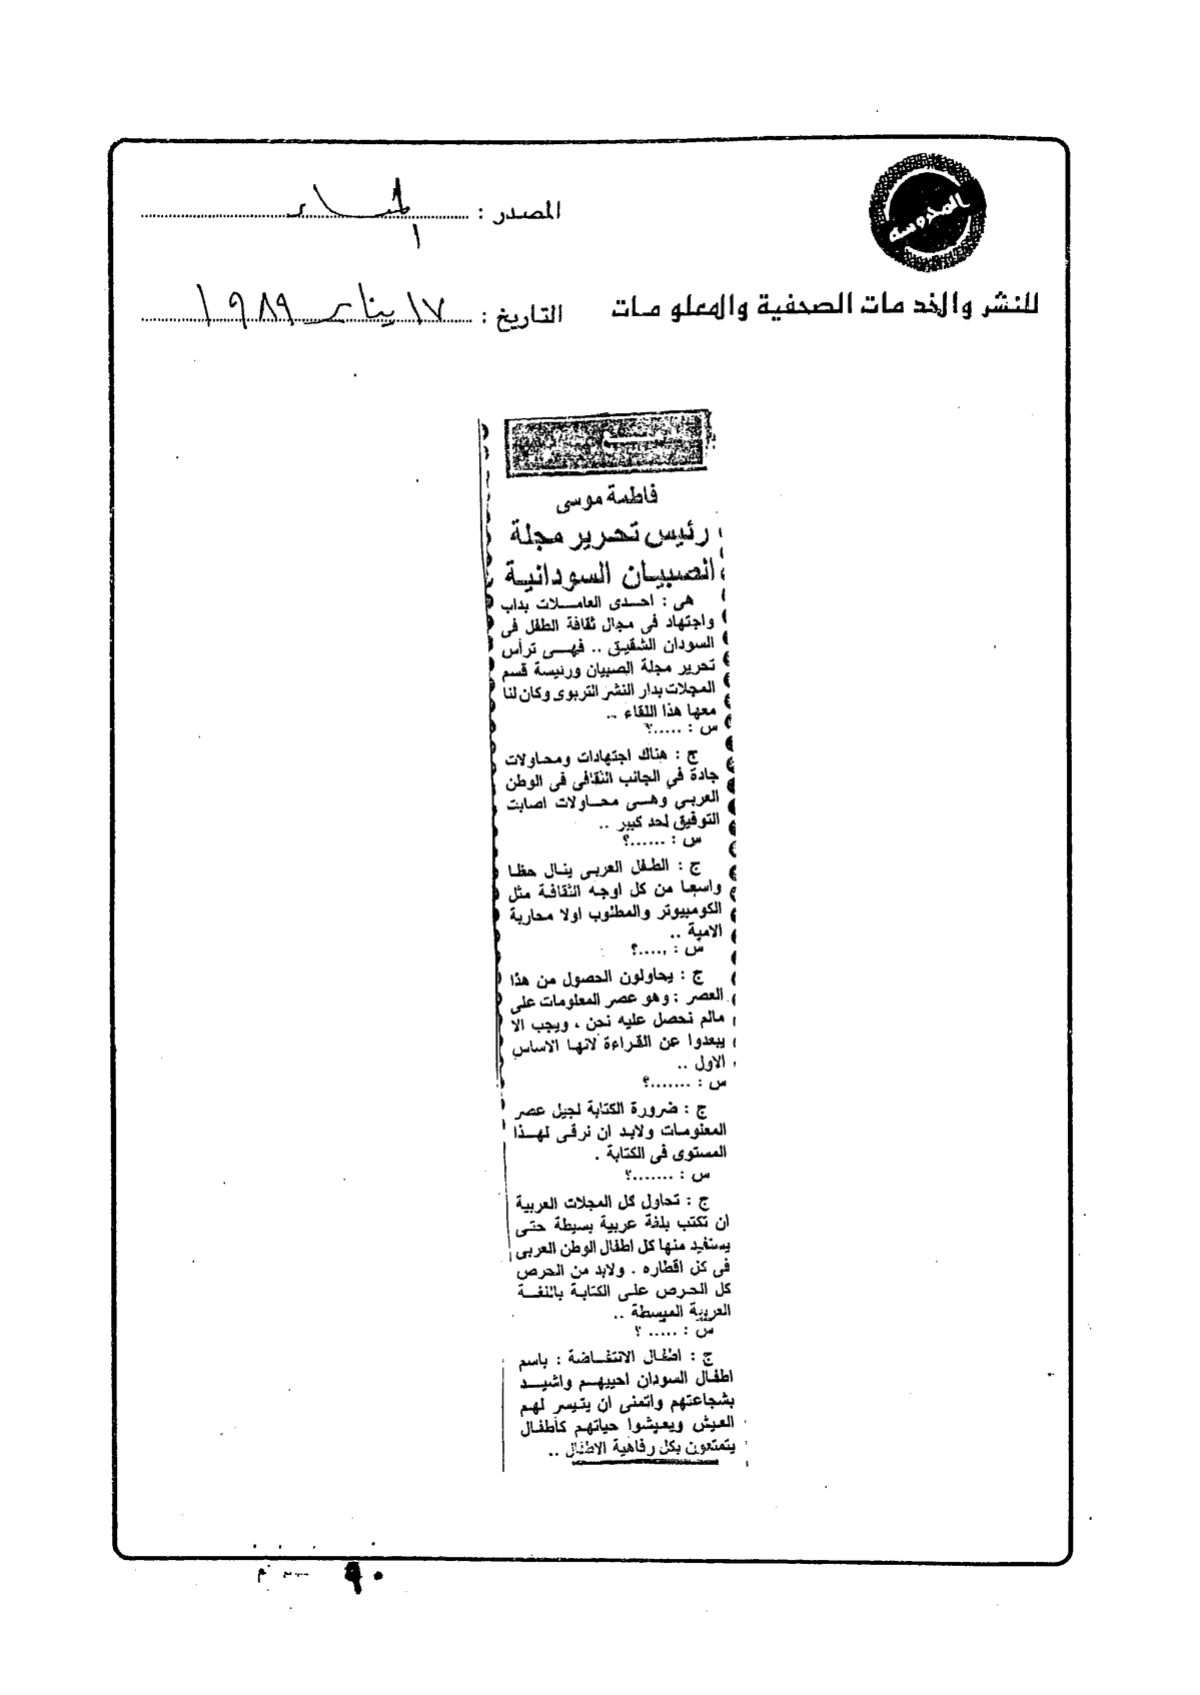 المحروسة
المصدر : المساء
للنشر والخدمات الصحفية والمعلومات
التاريخ : ١٧ يناير ١٩٨٩
فاطمة موسى
رئيس تحرير مجلة
الصبيان السودانية
هى : احدى العاملات بداب
واجتهاد فى مجال ثقافة الطفل فى
السودان الشقيق .. فهى ترأس
تحرير مجلة الصبيان ورئيسة قسم
المجلات بدار النشر التربوى وكان لنا
معها هذا اللقاء ..
س : .....؟
ج : هناك اجتهادات ومحاولات
جادة في الجانب الثقافى فى الوطن
العربى وهى محاولات اصابت
التوفيق لحد كبير ..
س : ......؟
ج : الطفل العربى ينال حظا
واسعا من كل اوجه الثقافة مثل
الكومبيوتر والمطلوب اولا محاربة
الامية ..
س : .....؟
ج : يحاولون الحصول من هذا
العصر : وهو عصر المعلومات على
مالم نحصل عليه نحن ، ويجب الا
يبعدوا عن القراءة لانها الاساس
الاول ..
س : .......؟
ج : ضرورة الكتابة لجيل عصر
المعلومات ولابد ان نرقى لهذا
المستوى فى الكتابة .
س : .......؟
ج : تحاول كل المجلات العربية
ان تكتب بلغة عربية بسيطة حتى
يستفيد منها كل اطفال الوطن العربى
فى كل اقطاره . ولابد من الحرص
كل الحرص على الكتابة باللغة
العربية المبسطة ..
س : ..... ؟
ج : اطفال الانتفاضة : باسم
اطفال السودان احييهم واشيد
بشجاعتهم واتمنى ان يتيسر لهم
العيش ويعيشوا حياتهم كأطفال
يتمتعون بكل رفاهية الاطفال ..
٩٠